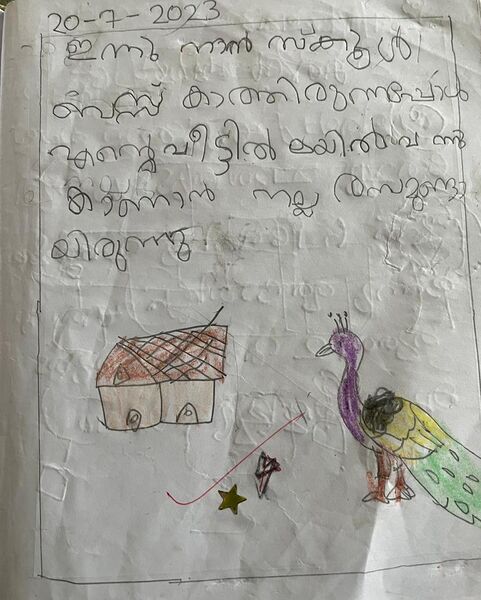 20-7-2023
ഇന്നു ഞാൻ സ്കൂൾ
ബസ്സ് കാത്തിരുന്നപ്പോൾ
എന്റെ വീട്ടിൽ മയിൽ വന്നു
കാണാൻ നല്ല രസമുണ്ടാ
യിരുന്നു